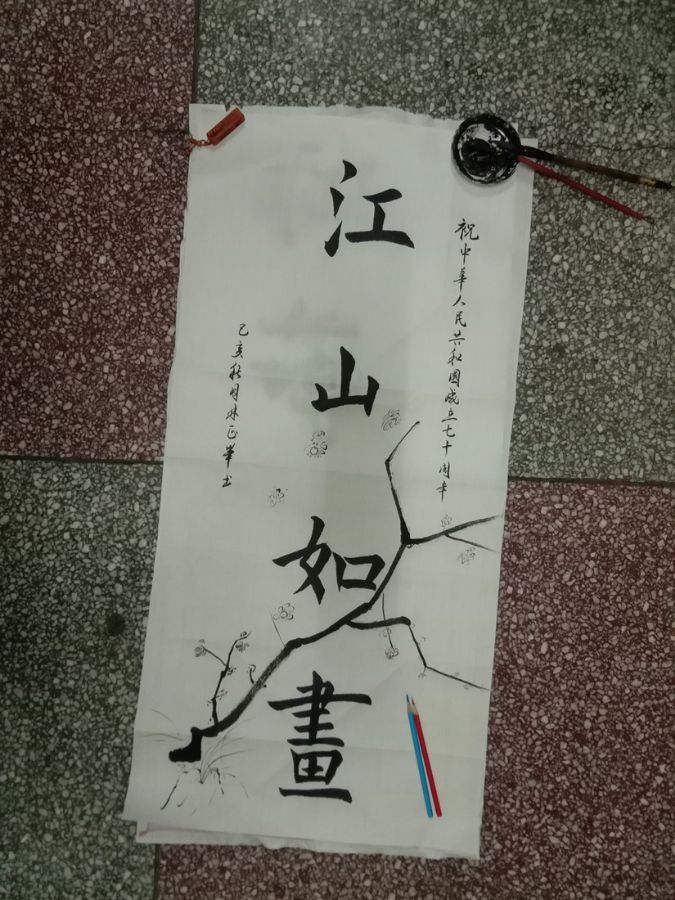 祝中華人民共和國成立七十周年
江山如畫
己亥秋月林正華书